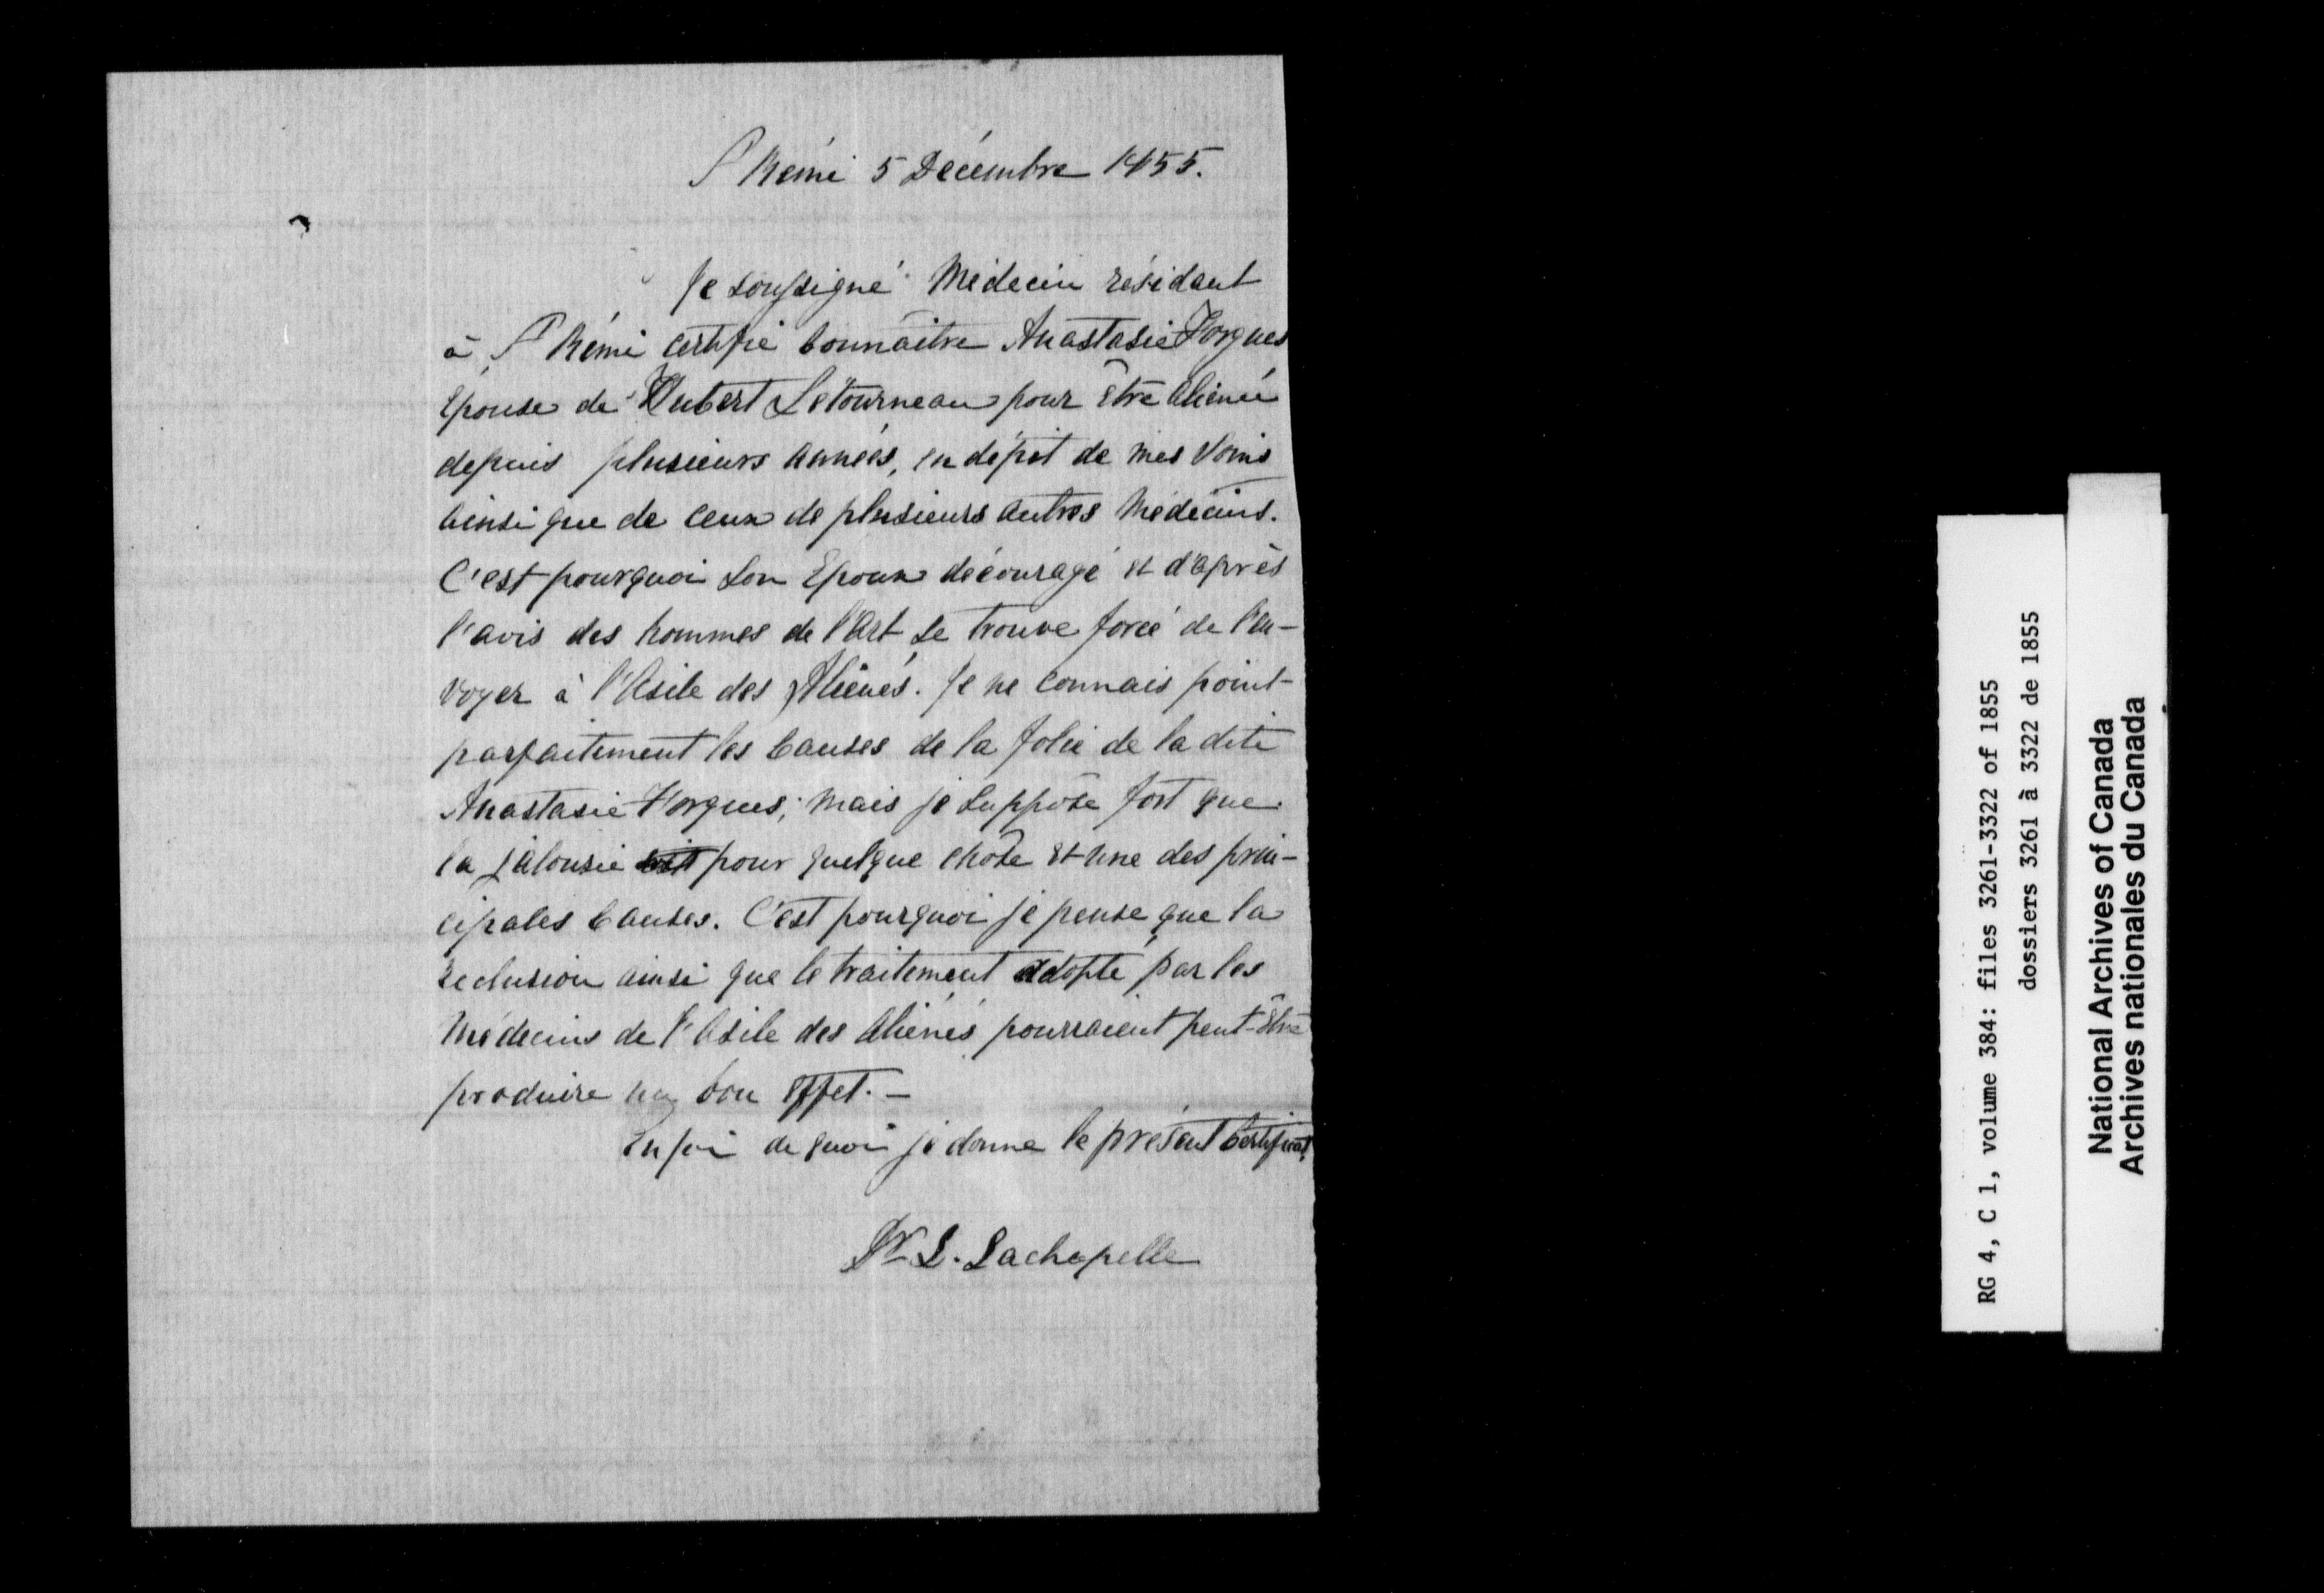 St Rémi 5 Décembre 1855.
Je soussigné Médecin résidant
à St Rémi certifie connaître Anastasie Forgues
Epouse de Hubert Letourneau pour être Aliénée
depuis plusieurs années, en dépit de mes soins
ainsi que de ceux de plusieurs autres Médecins.
C'est pourquoi son Epoux découragé et d'après
l'avis des hommes de l'Art se trouve forcé de l'en-
voyer à l'Asile des Aliénés. Je ne connais point
parfaitement les causes de la folie de la dite
Anastasie Forgues; mais je suppose fort que
la jalousie soit pour quelque chose et une des prin-
cipales causes. C'est pourquoi je pense que la
reclusion ainsi que le traitement adopté par les
Médecins de l'Asile des Aliénés pourraient peut-être
produire un bon effet. —
En foi de quoi je donne le présent Certificat,
Dr L. Lachapelle
RG 4, C 1, volume 384: files 3261-3322 of 1855
dossiers 3261 à 3322 de 1855
National Archives of Canada
Archives nationales du Canada